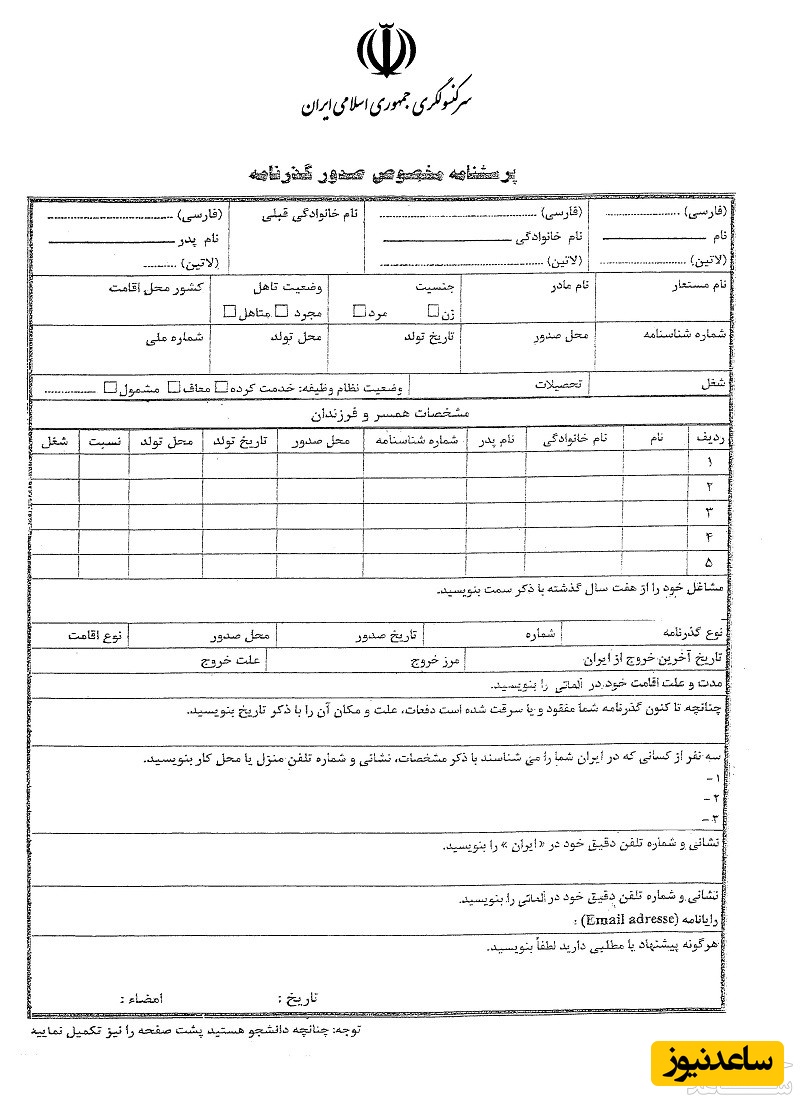 سرکنسولگری جمهوری اسلامی ایران
پرسشنامه مخصوص صدور گذرنامه
(فارسی) ........ (فارسی) ........ نام خانوادگی قبلی (فارسی) ........
نام ــــــــ نام خانوادگی ــــــــ نام پدر ــــــــ
(لاتین) ........ (لاتین) ........ (لاتین) ........
نام مستعار نام مادر جنسیت وضعیت تاهل کشور محل اقامت
زن□ مرد□ مجرد □ متاهل□
شماره شناسنامه محل صدور تاریخ تولد محل تولد شماره ملی
شغل تحصیلات وضعیت نظام وظیفه: خدمت کرده□ معاف□ مشمول□ ........
مشخصات همسر و فرزندان
ردیف نام نام خانوادگی نام پدر شماره شناسنامه محل صدور تاریخ تولد محل تولد نسبت شغل
۱
۲
۳
۴
۵
مشاغل خود را از هفت سال گذشته با ذکر سمت بنویسید.
نوع گذرنامه شماره تاریخ صدور محل صدور نوع اقامت
تاریخ آخرین خروج از ایران مرز خروج علت خروج
مدت و علت اقامت خود در آلماتی را بنویسید.
چنانچه تا کنون گذرنامه شما مفقود و یا سرقت شده است دفعات، علت و مکان آن را با ذکر تاریخ بنویسید.
سه نفر از کسانی که در ایران شما را می شناسند با ذکر مشخصات، نشانی و شماره تلفن منزل یا محل کار بنویسید.
۱-
۲-
۳-
نشانی و شماره تلفن دقیق خود در «ایران» را بنویسید.
نشانی و شماره تلفن دقیق خود در آلماتی را بنویسید.
رایانامه (Email adresse) :
هرگونه پیشنهاد یا مطلبی دارید لطفاً بنویسید.
تاریخ : امضاء :
توجه: چنانچه دانشجو هستید پشت صفحه را نیز تکمیل نمایید
ساعدنیوز